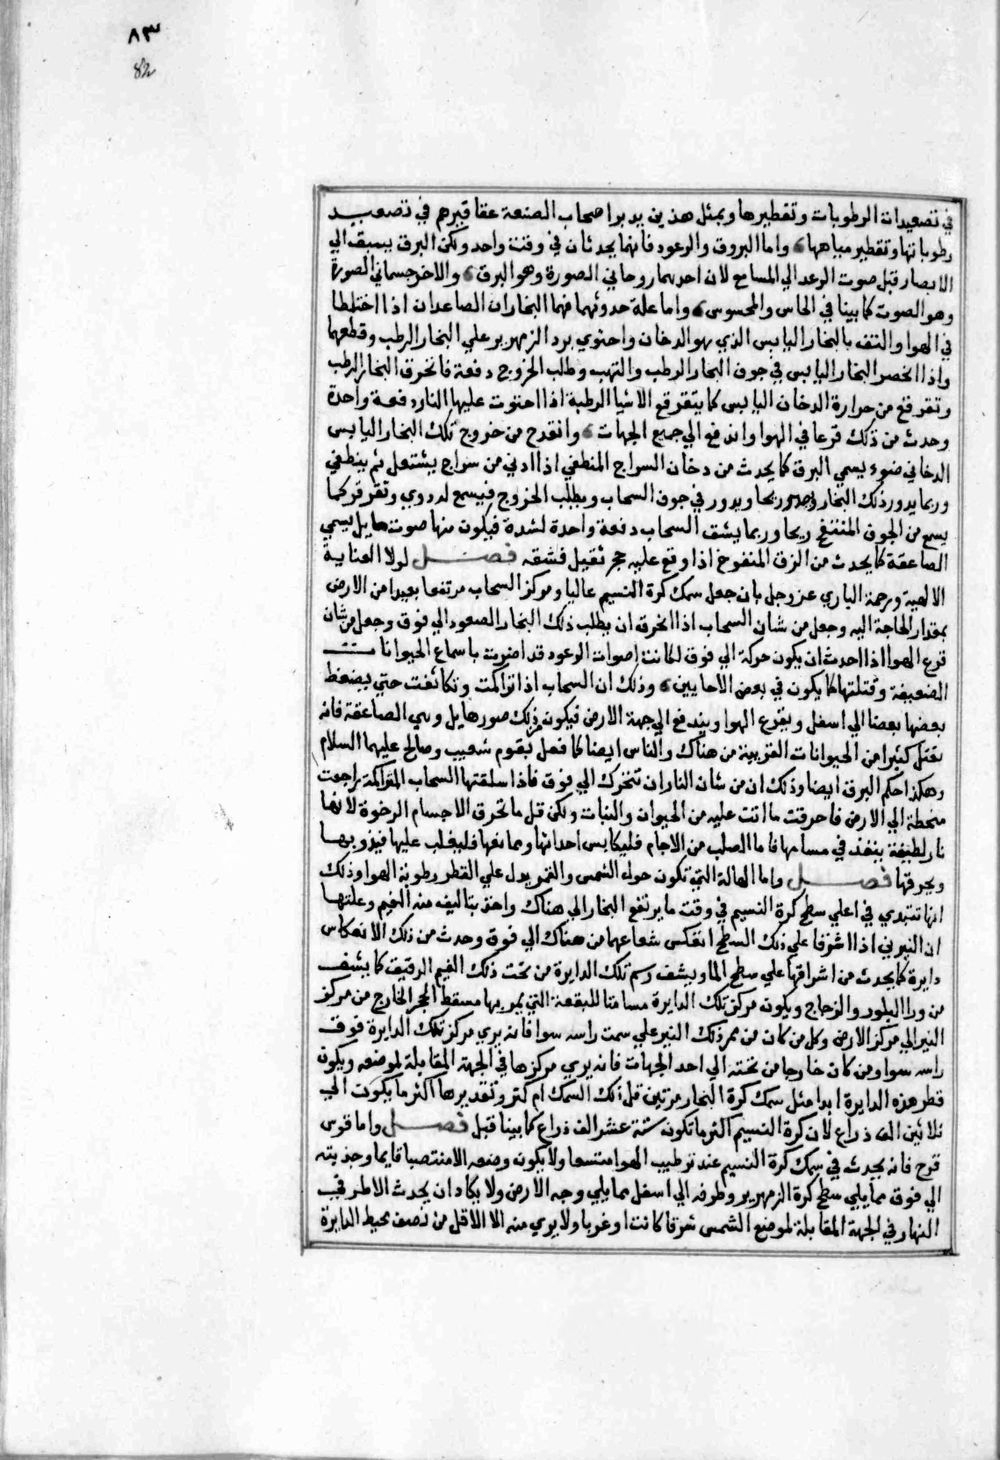 ٨٣
82
في تصعيدات الرطوبات وتقطيرها وبمثل هذين يدبر اصحاب الصنعة عقاقيرهم في تصعيد
رطوباتها وتقطير مياهها واما البروق والرعود فانهما يحدثان في وقت واحد ولكن البرق يسبق الي
الابصار قبل صوت الرعد الي المسامع لان احدهما روحاني الصورة وهو البرق والاخر جسماني الصورة
وهو الصوت كما بينا في الحاس والمحسوس واما علة حدوثهما فهما البخاران الصاعدان اذا اختلطا
في الهوا والتف بالبخار اليابس الذي هو الدخان واحتوي برد الزمهرير علي البخار الرطب وقطعهما
واذا انحصر البخار اليابس في جوف البخار الرطب والتهب وطلب الخروج دفعة فانخرق البخار الرطب
وتفرقع من حرارة الدخان اليابس كما يتفرقع الاشيا الرطبة اذا احتوت عليها النار دفعة واحدة
وحدث من ذلك قرعا في الهوا واندفع الي جميع الجهات وانقدح من خروج تلك البخار اليابس
الدخاني ضوء يسمي البرق كما يحدث من دخان السراج المنطفي اذا ادني من سراج يشتعل ثم ينطفي
وربما يدور ذلك البخار ريحا ويدور في جوف السحاب ويطلب الخروج فيسمع له دوي وتقرقر كما
يسمع من الجوف المنتفخ ريحا وربما يشق السحاب دفعة واحدة لشدة فيكون منها صوت هايل يسمي
الصاعقة كما يحدث من الزق المنفوخ اذا وقع عليه حجر ثقيل فشقه فصل لولا العناية
الالهية ورحمة الباري عز وجل بان جعل سمك كرة النسيم عاليا ومركز السحاب مرتفعا بعيدا من الارض
بمقدار الحاجة اليه وجعل من شان السحاب اذا انخرق ان يطلب ذلك البخار الصعود الي فوق وجعل من شان
قرع الهوا اذا احدث ان يكون حركة الي فوق لكانت اصوات الرعود قد اضرت باسماع الحيوانات
الضعيفة وقتلتها كما يكون في بعض الاحايين وذلك ان السحاب اذا تراكمت وتكاثفت حتي يضغط
بعضها بعضا الي اسفل ويقرع الهوا ويندفع الي جهة الارض فيكون من ذلك صور هايل وهي الصاعقة فانه
يقتل كثيرا من الحيوانات القريبة من هناك والناس ايضا كما فعل بقوم شعيب وصالح عليهما السلام
وهكذا حكم البرق ايضا وذلك ان من شان النار ان تتحرك الي فوق فاذا سلقتها السحاب المتراكمة تراجعت
منحطة الي الارض فاحرقت ما اتت عليه من الحيوان والنبات ولكن قل ما تحرق الاجسام الرخوة لانها
نار لطيفة ينفذ في مسامها فاما الصلب من الاجام فليكابس احداثها وممانعها فليغلب عليها فيذوبها
ويحرقها فصل واما الهالة التي تكون حول الشمس والقمر يدل علي القطر ورطوبة الهوا وذلك
انها تبتدي في اعلي سطح كرة النسيم في وقت ما يرتفع البخار الي هناك واخذ بتاليف منه الغيم وعلتها
ان النيرين اذا اشرقا علي ذلك السطح انعكس شعاعهما من هناك الي فوق وحدث من ذلك الانعكاس
دايرة كما يحدث من اشراقها علي سطح الما ويشف رسم تلك الدايرة من تحت ذلك الغيم الرقيق كما يشف
من ورا البلور والزجاج ويكون مركز تلك الدايرة مسامتا للبقعة التي يمر بها مسقط الحجر الخارج من مركز
النير الي مركز الارض وكل من كان من ممر ذلك النير علي سمت راسه سوا فانه يري مركز تلك الدايرة فوق
راسه سوا ومن كان خارجا من تحته الي احد الجهات فانه يري مركزها في الجهة المقابلة لموضعه ويكون
قطر هذه الدايرة ابدا مثل سمك كرة البخار مرتين قل ذلك السمك ام كثر وتقديرها اكثر ما يكون الي
ثلاثين الف ذراع لان كرة النسيم اكثر ما تكون ستة عشر الف ذراع كما بينا قبل فصل واما قوس
قزح فانه يحدث في سمك كرة النسيم عند ترطيب الهوا متسعا ولا يكون وضعه الا منتصبا قايما وحدبته
الي فوق مما يلي سطح كرة الزمهرير وطرفه الي اسفل مما يلي وجه الارض ولا يكاد ان يحدث الا طرفي
النهار في الجهة المقابلة لموضع الشمس شرقا كانت او غربا ولا يري منه الا الاقل من نصف محيط الدايرة